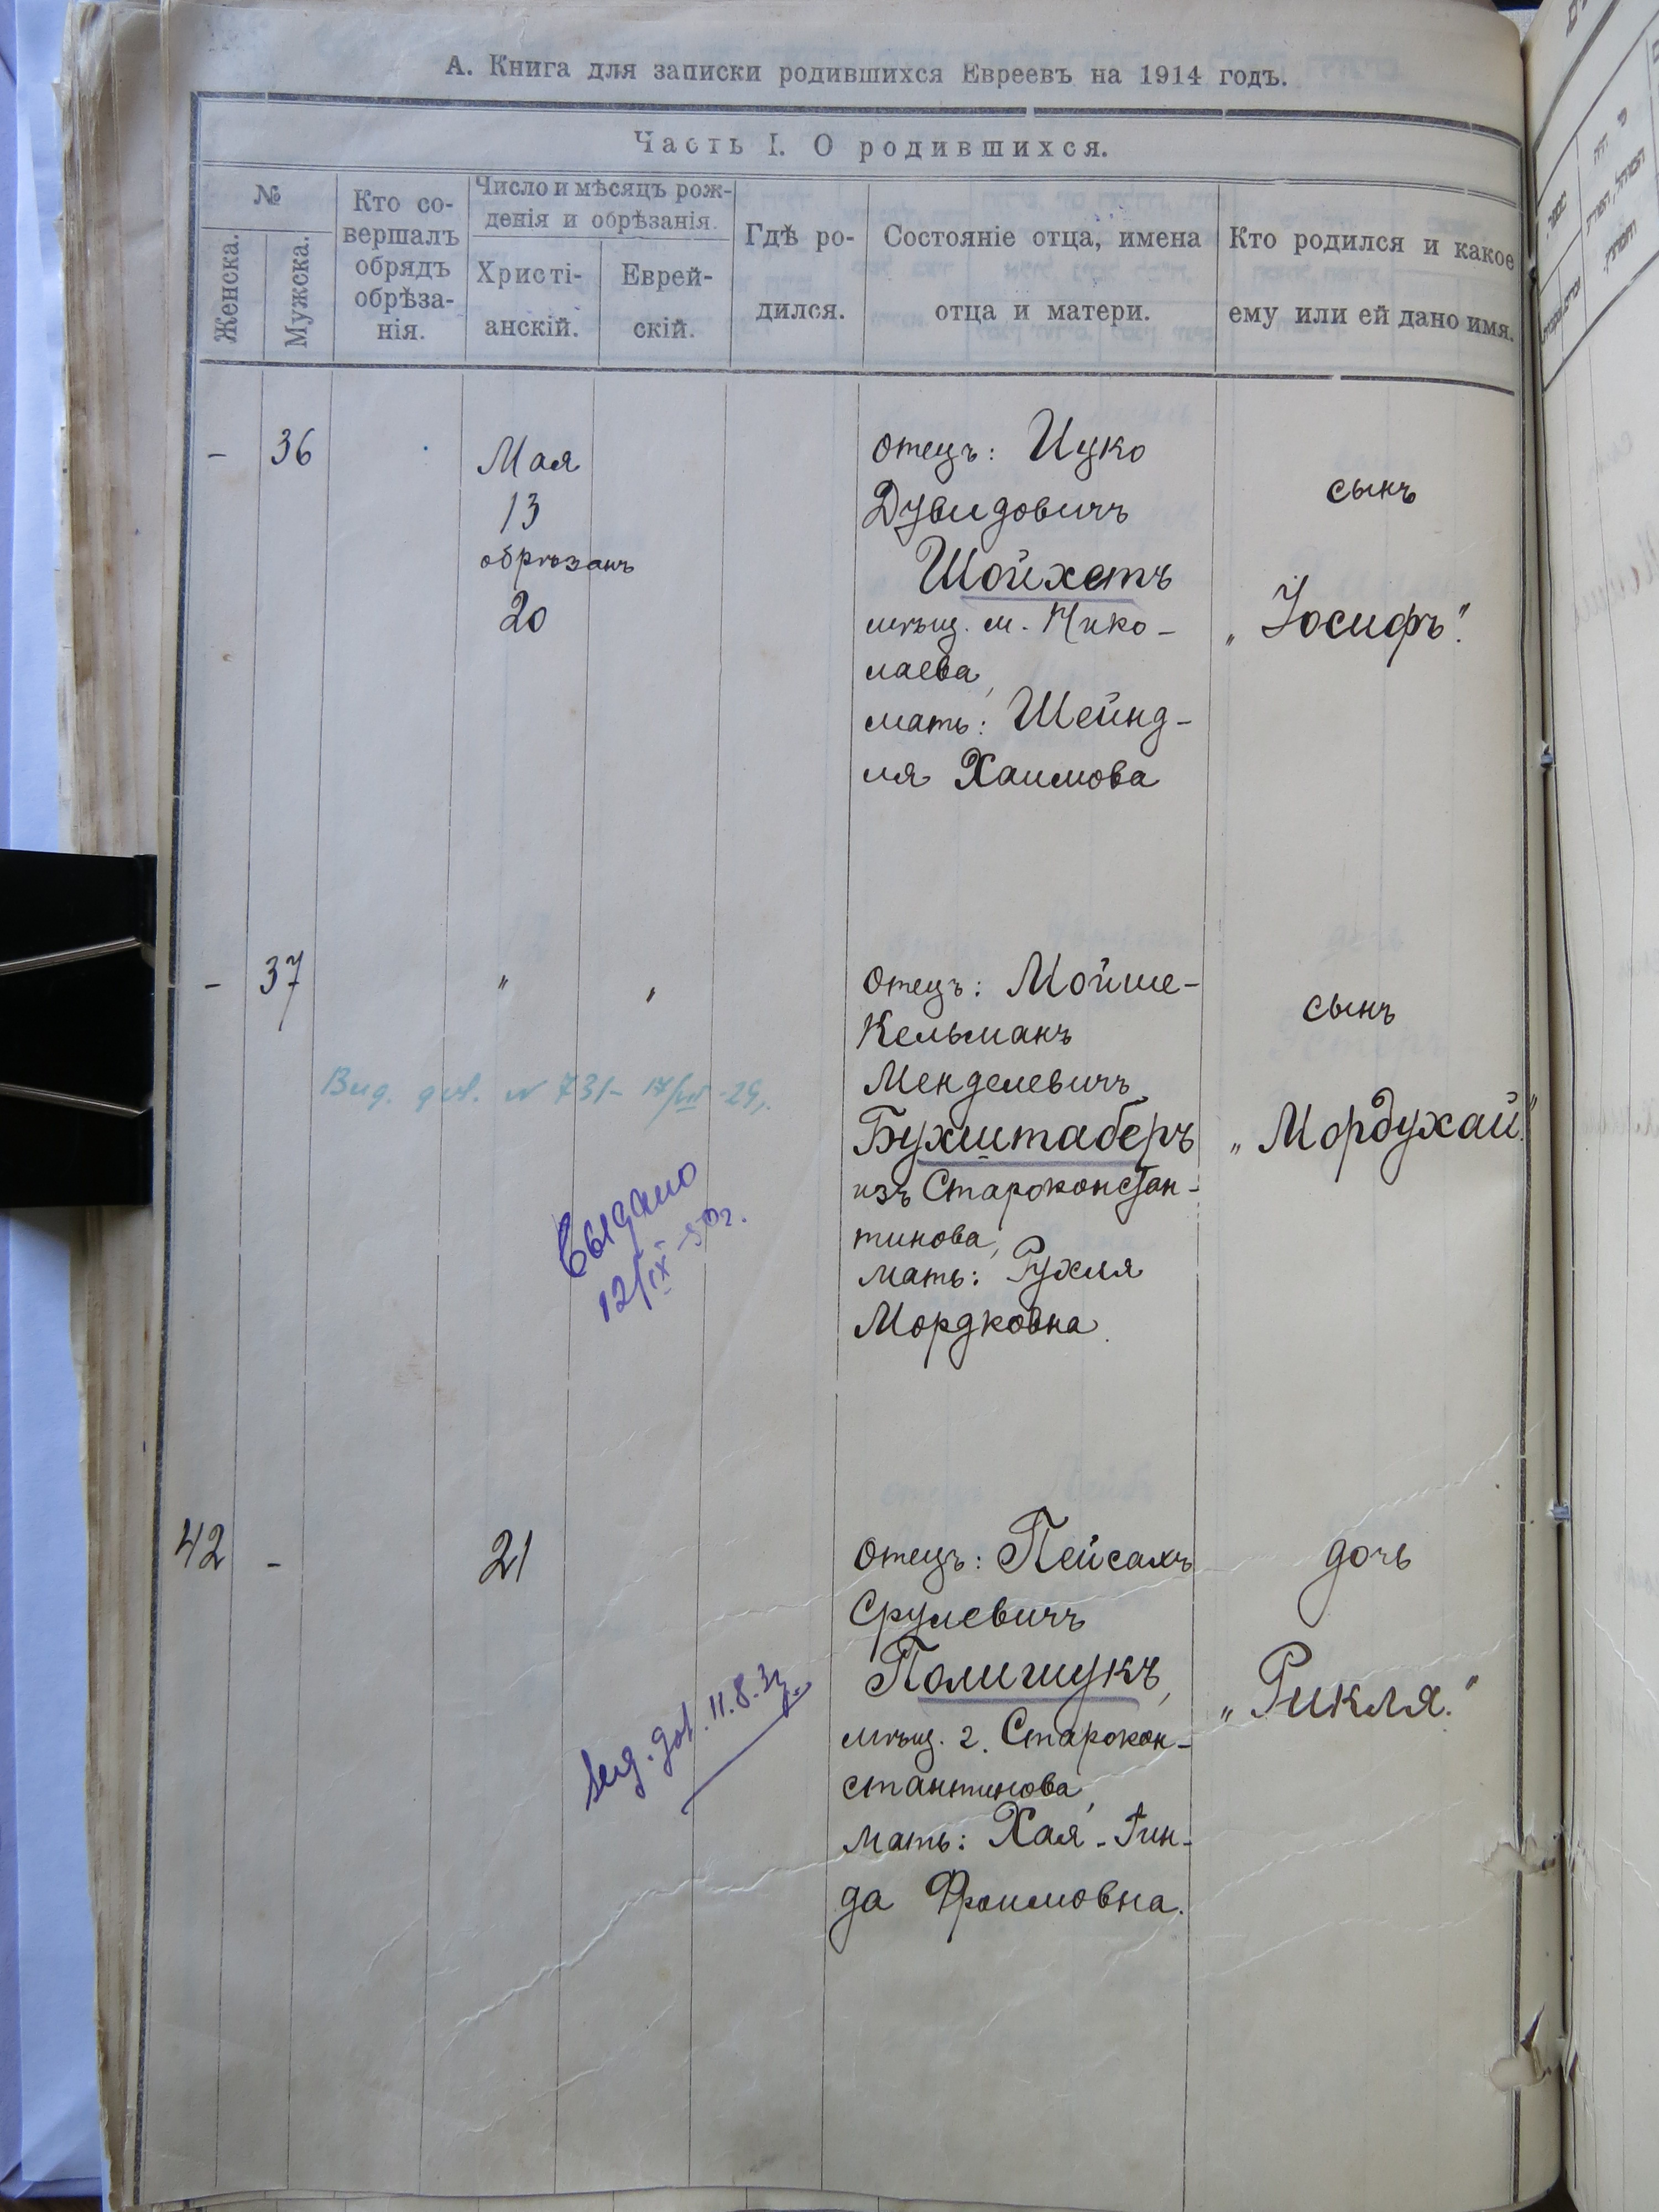 А. Книга для записки родившихся Евреевъ на 1914 годъ.
Часть I. О родившихся.
№
Женска.
Мужска.
Кто со-
вершалъ
обрядъ
обрѣза-
нія.
Число и мѣсяцъ рож-
денія и обрѣзанія.
Христі-
анскій.
Еврей-
скій.
Гдѣ ро-
дился.
Состояніе отца, имена
отца и матери.
Кто родился и какое
ему или ей дано имя.
- 36
Мая
13
обрѣзанъ
20
отецъ: Ицко
Дувидовичъ
Шойхетъ
мѣщ. м. Нико-
лаева,
мать: Шейнд-
ля Хаимова
сынъ
„Іосифъ".
- 37
" "
Вид. дов. N 731- 17/VII -29.
Выдано
12/IX -50г.
Отецъ: Мойше-
Кельманъ
Менделевичъ
Бухштаберъ
изъ Староконстан-
тинова,
мать: Рухля
Мордковна.
сынъ
„Мордухай".
42 -
21
вид. дов. 11.8.32
Отецъ: Пейсахъ
Срулевичъ
Полищукъ,
мѣщ. г. Старокон-
стантинова,
мать: Хая-Гин-
да Фроимовна.
дочь
„Рикля."